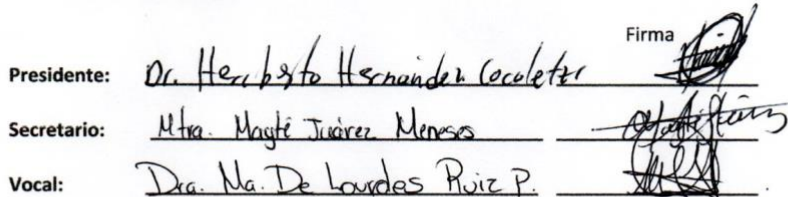 Firma
Presidente: Dr. Heriberto Hernández Cocoletzi
Secretario: Mtra. Mayté Juárez Meneses
Vocal: Dra. Ma. De Lourdes Ruiz P.